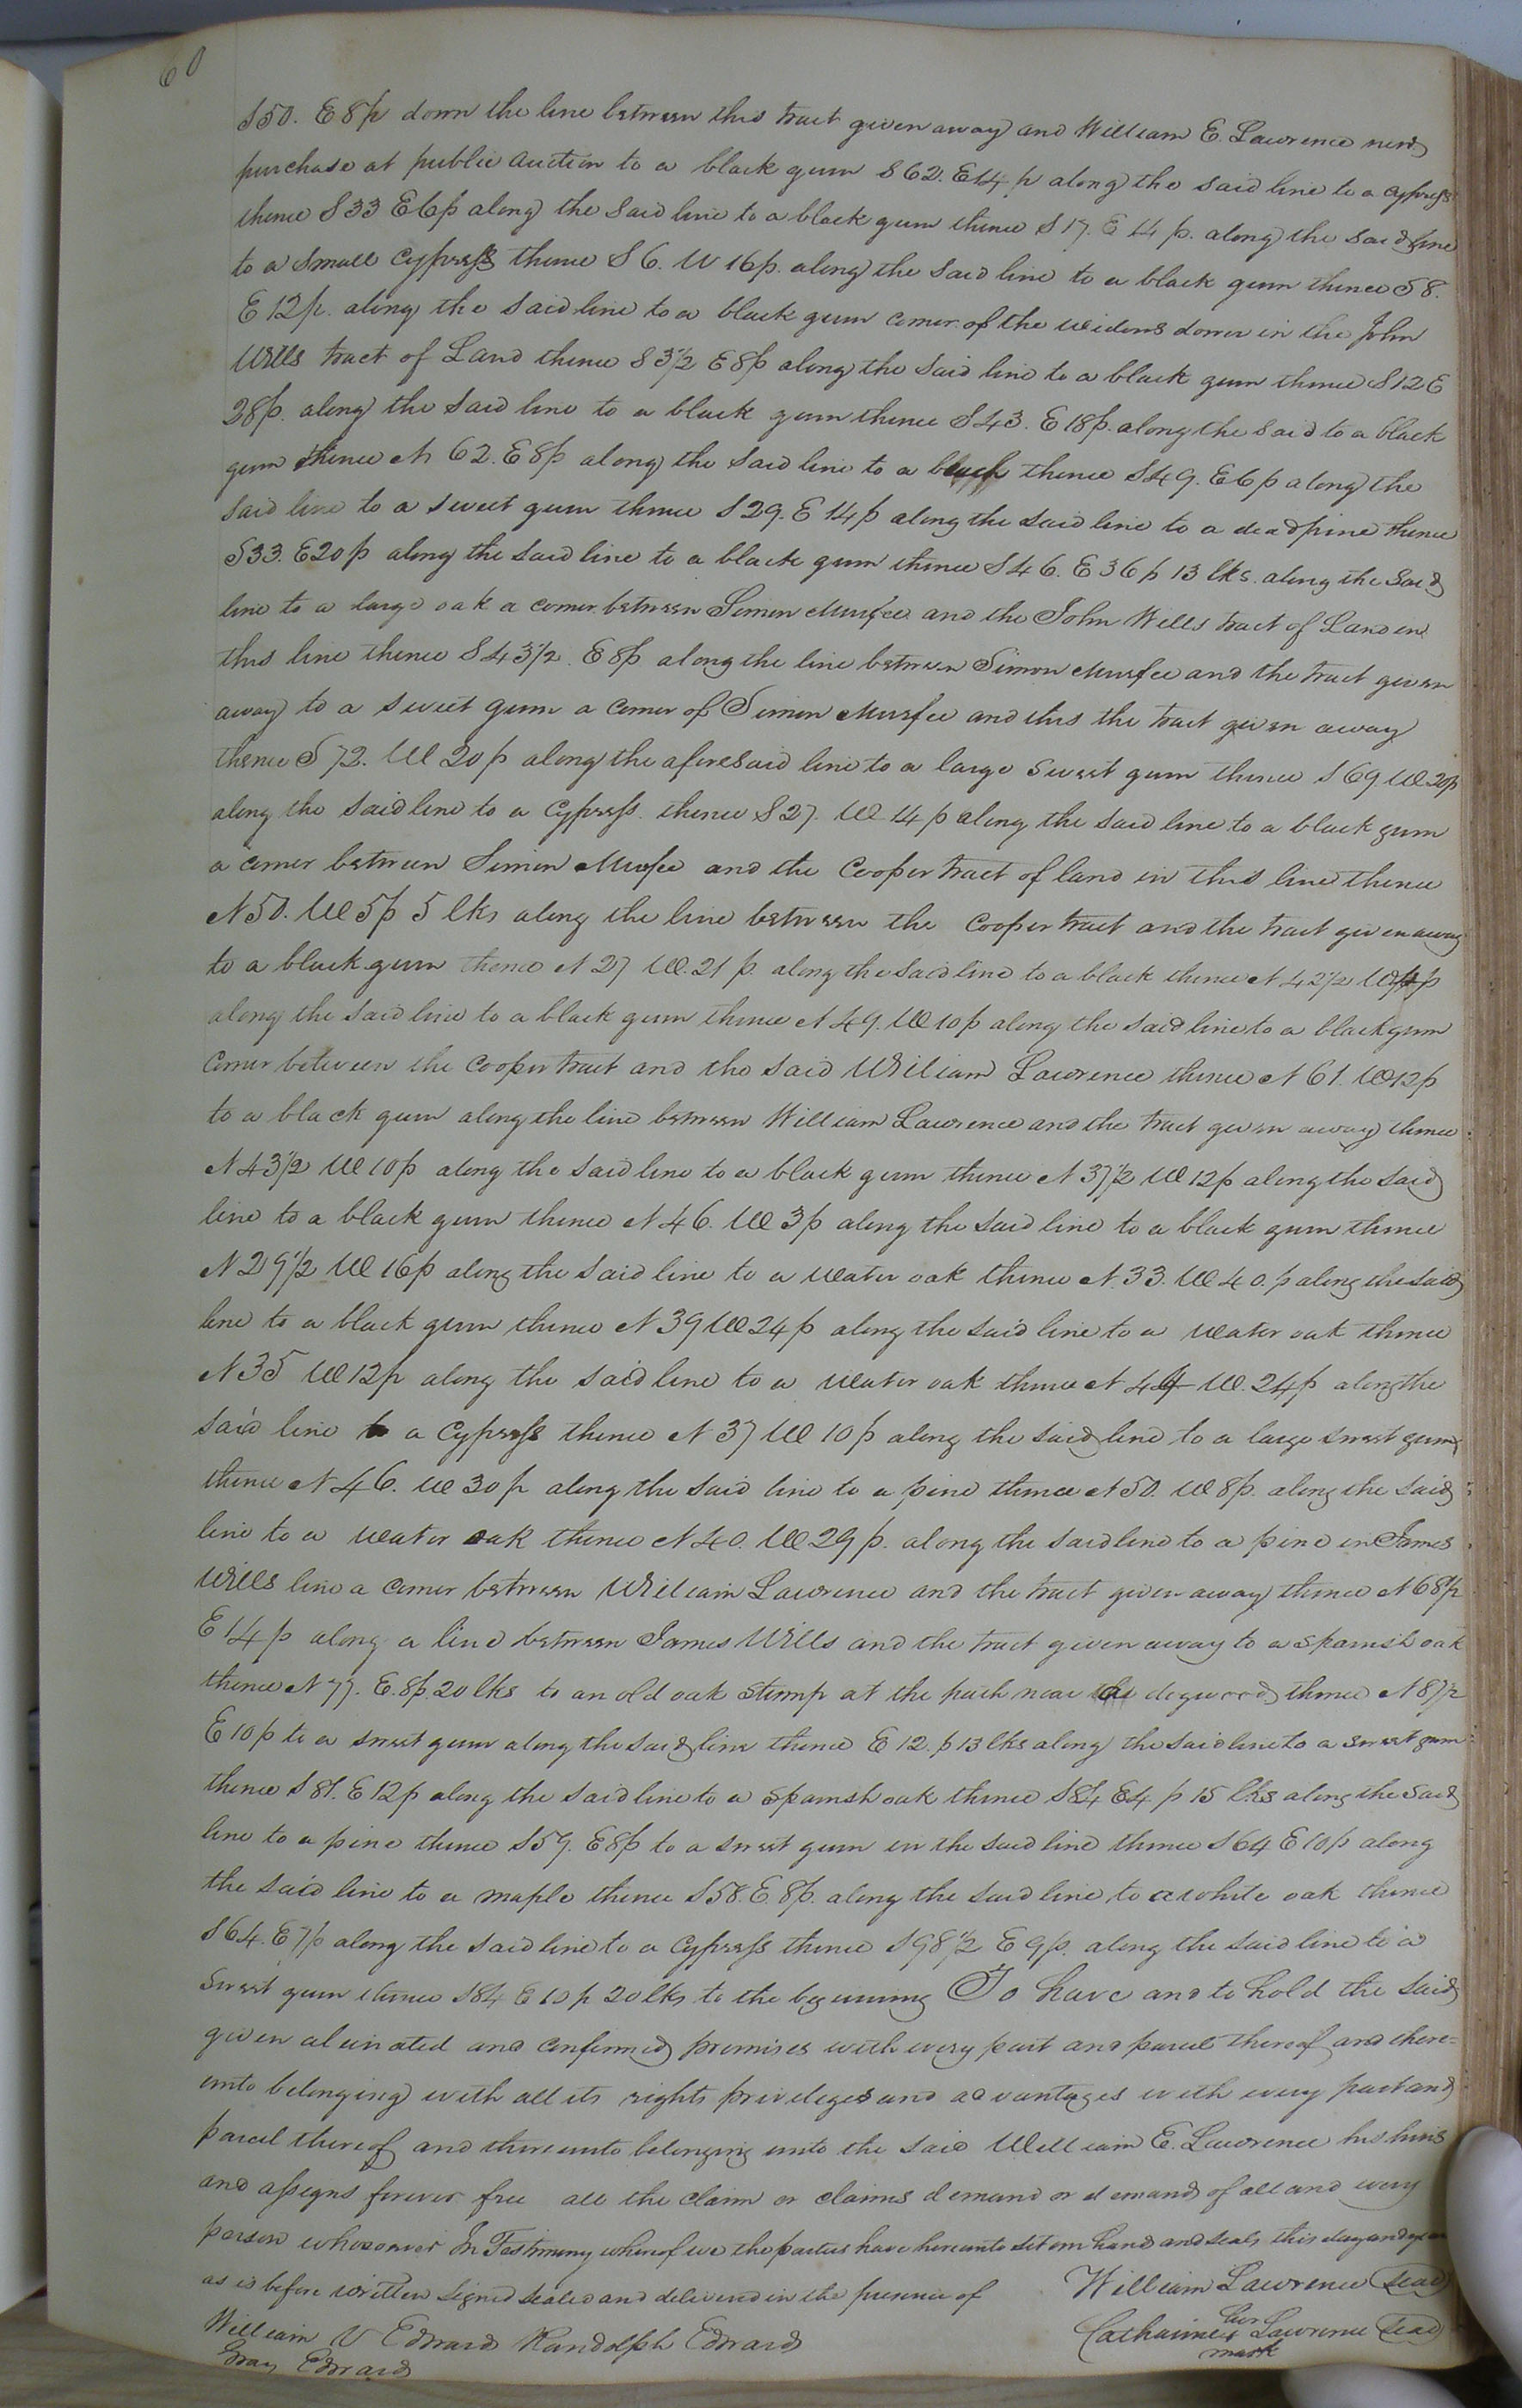 60
S50. E8p down the line between this tract given away and William E. Lawrence new
purchase at public Auction to a black gum S62. E14p along the said line to a cypress
thence S33 E6p along the said line to a black gum thence S17. E14p. along the said line
to a small Cypress thence S6. W16p. along the said line to a black gum thence S8.
E12p. along the said line to a black gum corner of the widows dower in the John
Wills tract of Land thence S3½ E8p along the said line to a black gum thence S12E
28p. along the said line to a black gum thence S43. E18p. along the said to a black
gum thence N62. E8p along the said line to a thence S49. E6p along the
said line to a sweet gum thence S29. E14p along the said line to a dead pine thence
S33. E20p along the said line to a black gum thence S46. E36p 13 lks. along the said
line to a large oak a corner between Simon Murfee and the John Wills tract of Land in
this line thence S43½. E8p along the line between Simon Murfee and the tract given
away to a sweet gum a corner of Simon Murfee and this the tract given away
thence S72. W20p along the aforesaid line to a large sweet gum thence S69 W20p
along the said line to a Cypress. thence S27. W14p along the said line to a black gum
a corner between Simon Murfee and the Cooper tract of land in this line thence
N50. W5p 5 lks along the line between the Cooper tract and the tract given away
to a black gum thence N27 W.21p. along the said line to a black thence N42½ W
along the said line to a black gum thence N49. W10p along the said line to a black gum
corner between the Cooper tract and the said William Lawrence thence N61. W12p
to a black gum along the line between William Lawrence and the tract given away thence
N43½ W10p along the said line to a black gum thence N37½ W12p along the said
line to a black gum thence N46. W3p along the said line to a black gum thence
N29½ W16p along the said line to a Water oak thence N.33. W40.p along the said
line to a black gum thence N39 W24p along the said line to a Water oak thence
N35 W12p along the said line to a Water oak thence N W.24p along the
said line to a Cypress thence N37 W10p along the said line to a large sweet gum
thence N46. W30p along the said line to a pine thence N50. W8p. along the said
line to a Water oak thence N40. W29p. along the said line to a pine in James
Wills line a corner between William Lawrence and the tract given away thence N68½
E14p along a line between James Wills and the tract given away to a Spanish oak
thence N77. E.8p.20 lks to an old oak stump at the path near the dogwood thence N87½
E10p to a sweet gum along the said line thence E12.p13lks along the said line to a sweet gum
thence S81. E12p along the said line to a Spanish oak thence S84 E4p 15 lks along the said
line to a pine thence S59. E8p to a sweet gum in the said line thence S64 E10p along
the said line to a maple thence S58.E.8p. along the said line to a white oak thence
S64.E7p along the said line to a Cypress thence S98½ E9p. along the said line to a
sweet gum thence S84 E10p 20lks to the beginning To have and to hold the said
given alienated and confirmed premises with every part and parcel thereof and there=
unto belonging with all its rights privileges and advantages with every part and
parcel thereof and thereunto belonging unto the said William E. Lawrence his heirs
and assigns forever free all the claim or claims demand or demands of all and every
person whosoever In Testimony whereof we the parties have hereunto set our hand and seals this day and year
as is before written Signed sealed and delivered in the presence of William Lawrence Seal
William V Edward Randolph Edward Catharine her x mark Lawrence Seal
Gray Edward